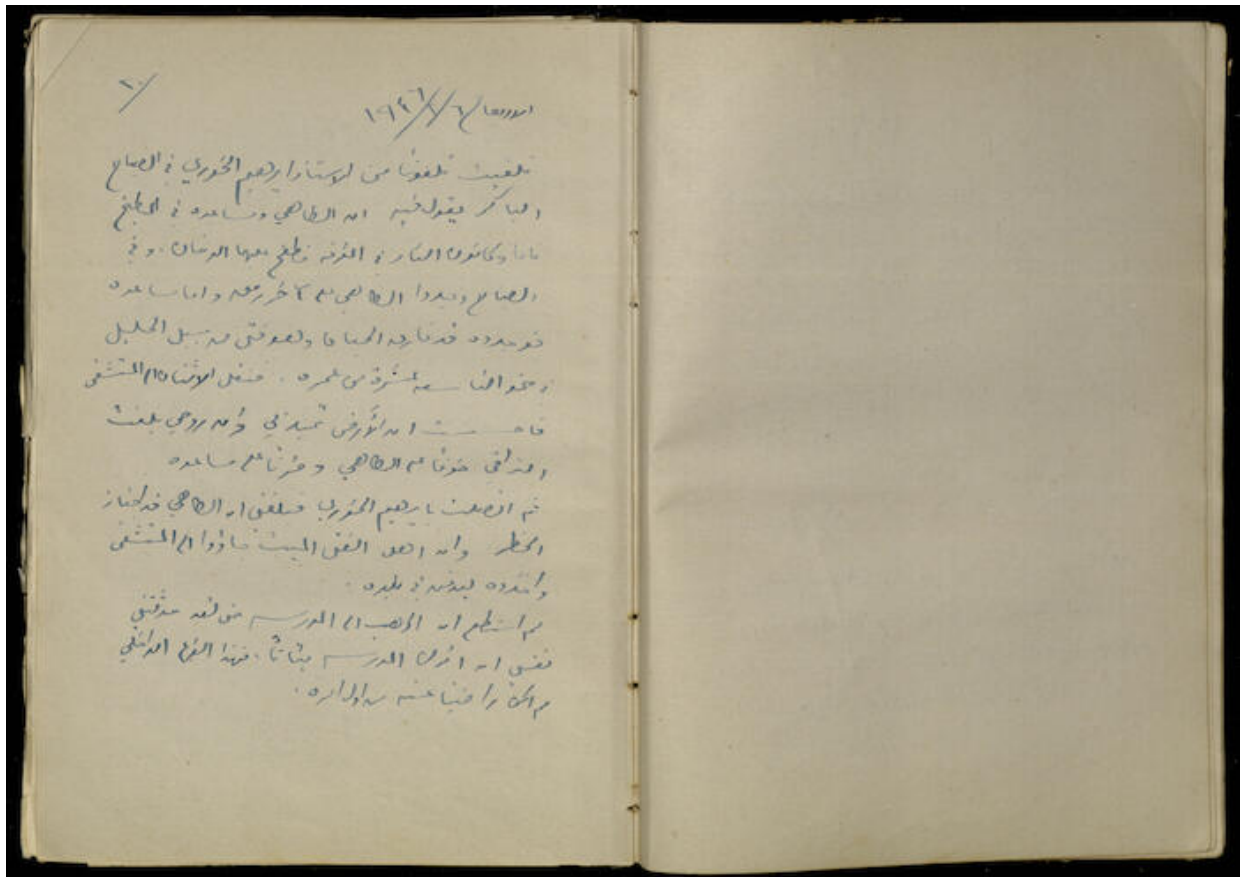 ٢٠/
الاربعاء ١٩٤٦/٢/٦
تلقيت تلفونا من الاستاذ ابرهيم الخوري في الصباح
الباكر يقول فيه ان الطاهي ومساعده في المطبخ
ناما وكانون النار في الغرفة فطلع عليهما الدخان. وفي
الصباح وجدوا الطاهي على آخر رمق واما مساعده
فوجدوه قد فارق الحياة وهو فتى من جبل الخليل
في نحو التاسعة عشرة من عمره. فنقل الاثنان الى المستشفى
فاحسست ان الأرض تميد بي وان روحي بلغت
التراقي خوفا على الطاهي وحزنا على مساعده
ثم اتصلت بابرهيم الخوري فبلغني ان الطاهي قد اجتاز
الخطر وان اهل الفتى الميت جاؤوا الى المستشفى
واخذوه ليدفن في بلده.
لم استطع ان اذهب الى المدرسة حتى لقد حدثتني
نفسي ان اترك المدرسة بتاتاً. فهذا القسم الداخلي
لم اكن راضيا عنه من اول امره.